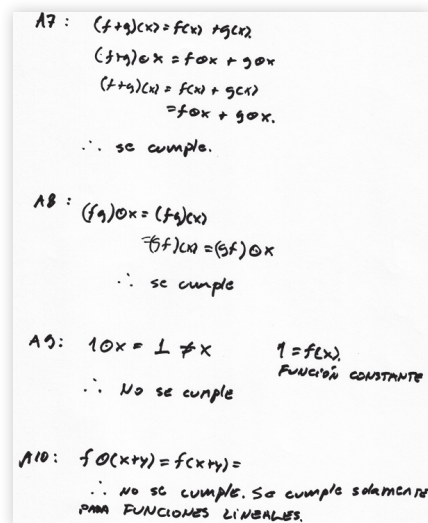 A7: (f+g)(x) = f(x) + g(x)
(f+g)⊙x = f⊙x + g⊙x
(f+g)(x) = f(x) + g(x)
= f⊙x + g⊙x.
∴ se cumple.
A8: (fg)⊙x = (fg)(x)
=(gf)(x) = (gf)⊙x
∴ se cumple
A9: 1⊙x = 1 ≠ x 1 = f(x).
FUNCIÓN CONSTANTE
∴ No se cumple
A10: f⊙(x+y) = f(x+y) =
∴ no se cumple. Se cumple solamente
PARA FUNCIONES LINEALES.